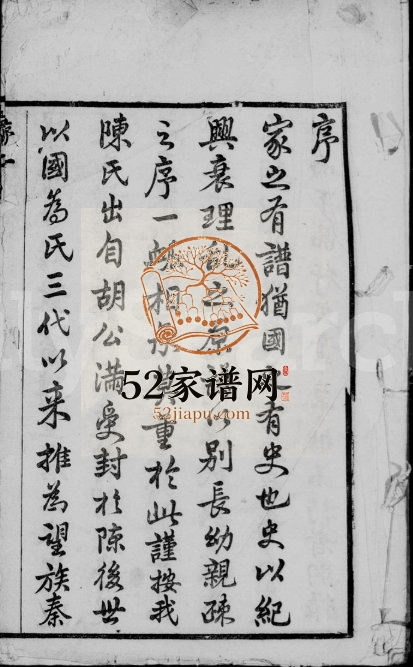 序
家之有譜猶國之有史也史以紀
興衰理亂之原譜以別長幼親疎
之序一 相 重於此謹按我
陳氏出自胡公滿受封於陳後世
以國為氏三代以來推為望族秦
52家谱网
52jiapu.com